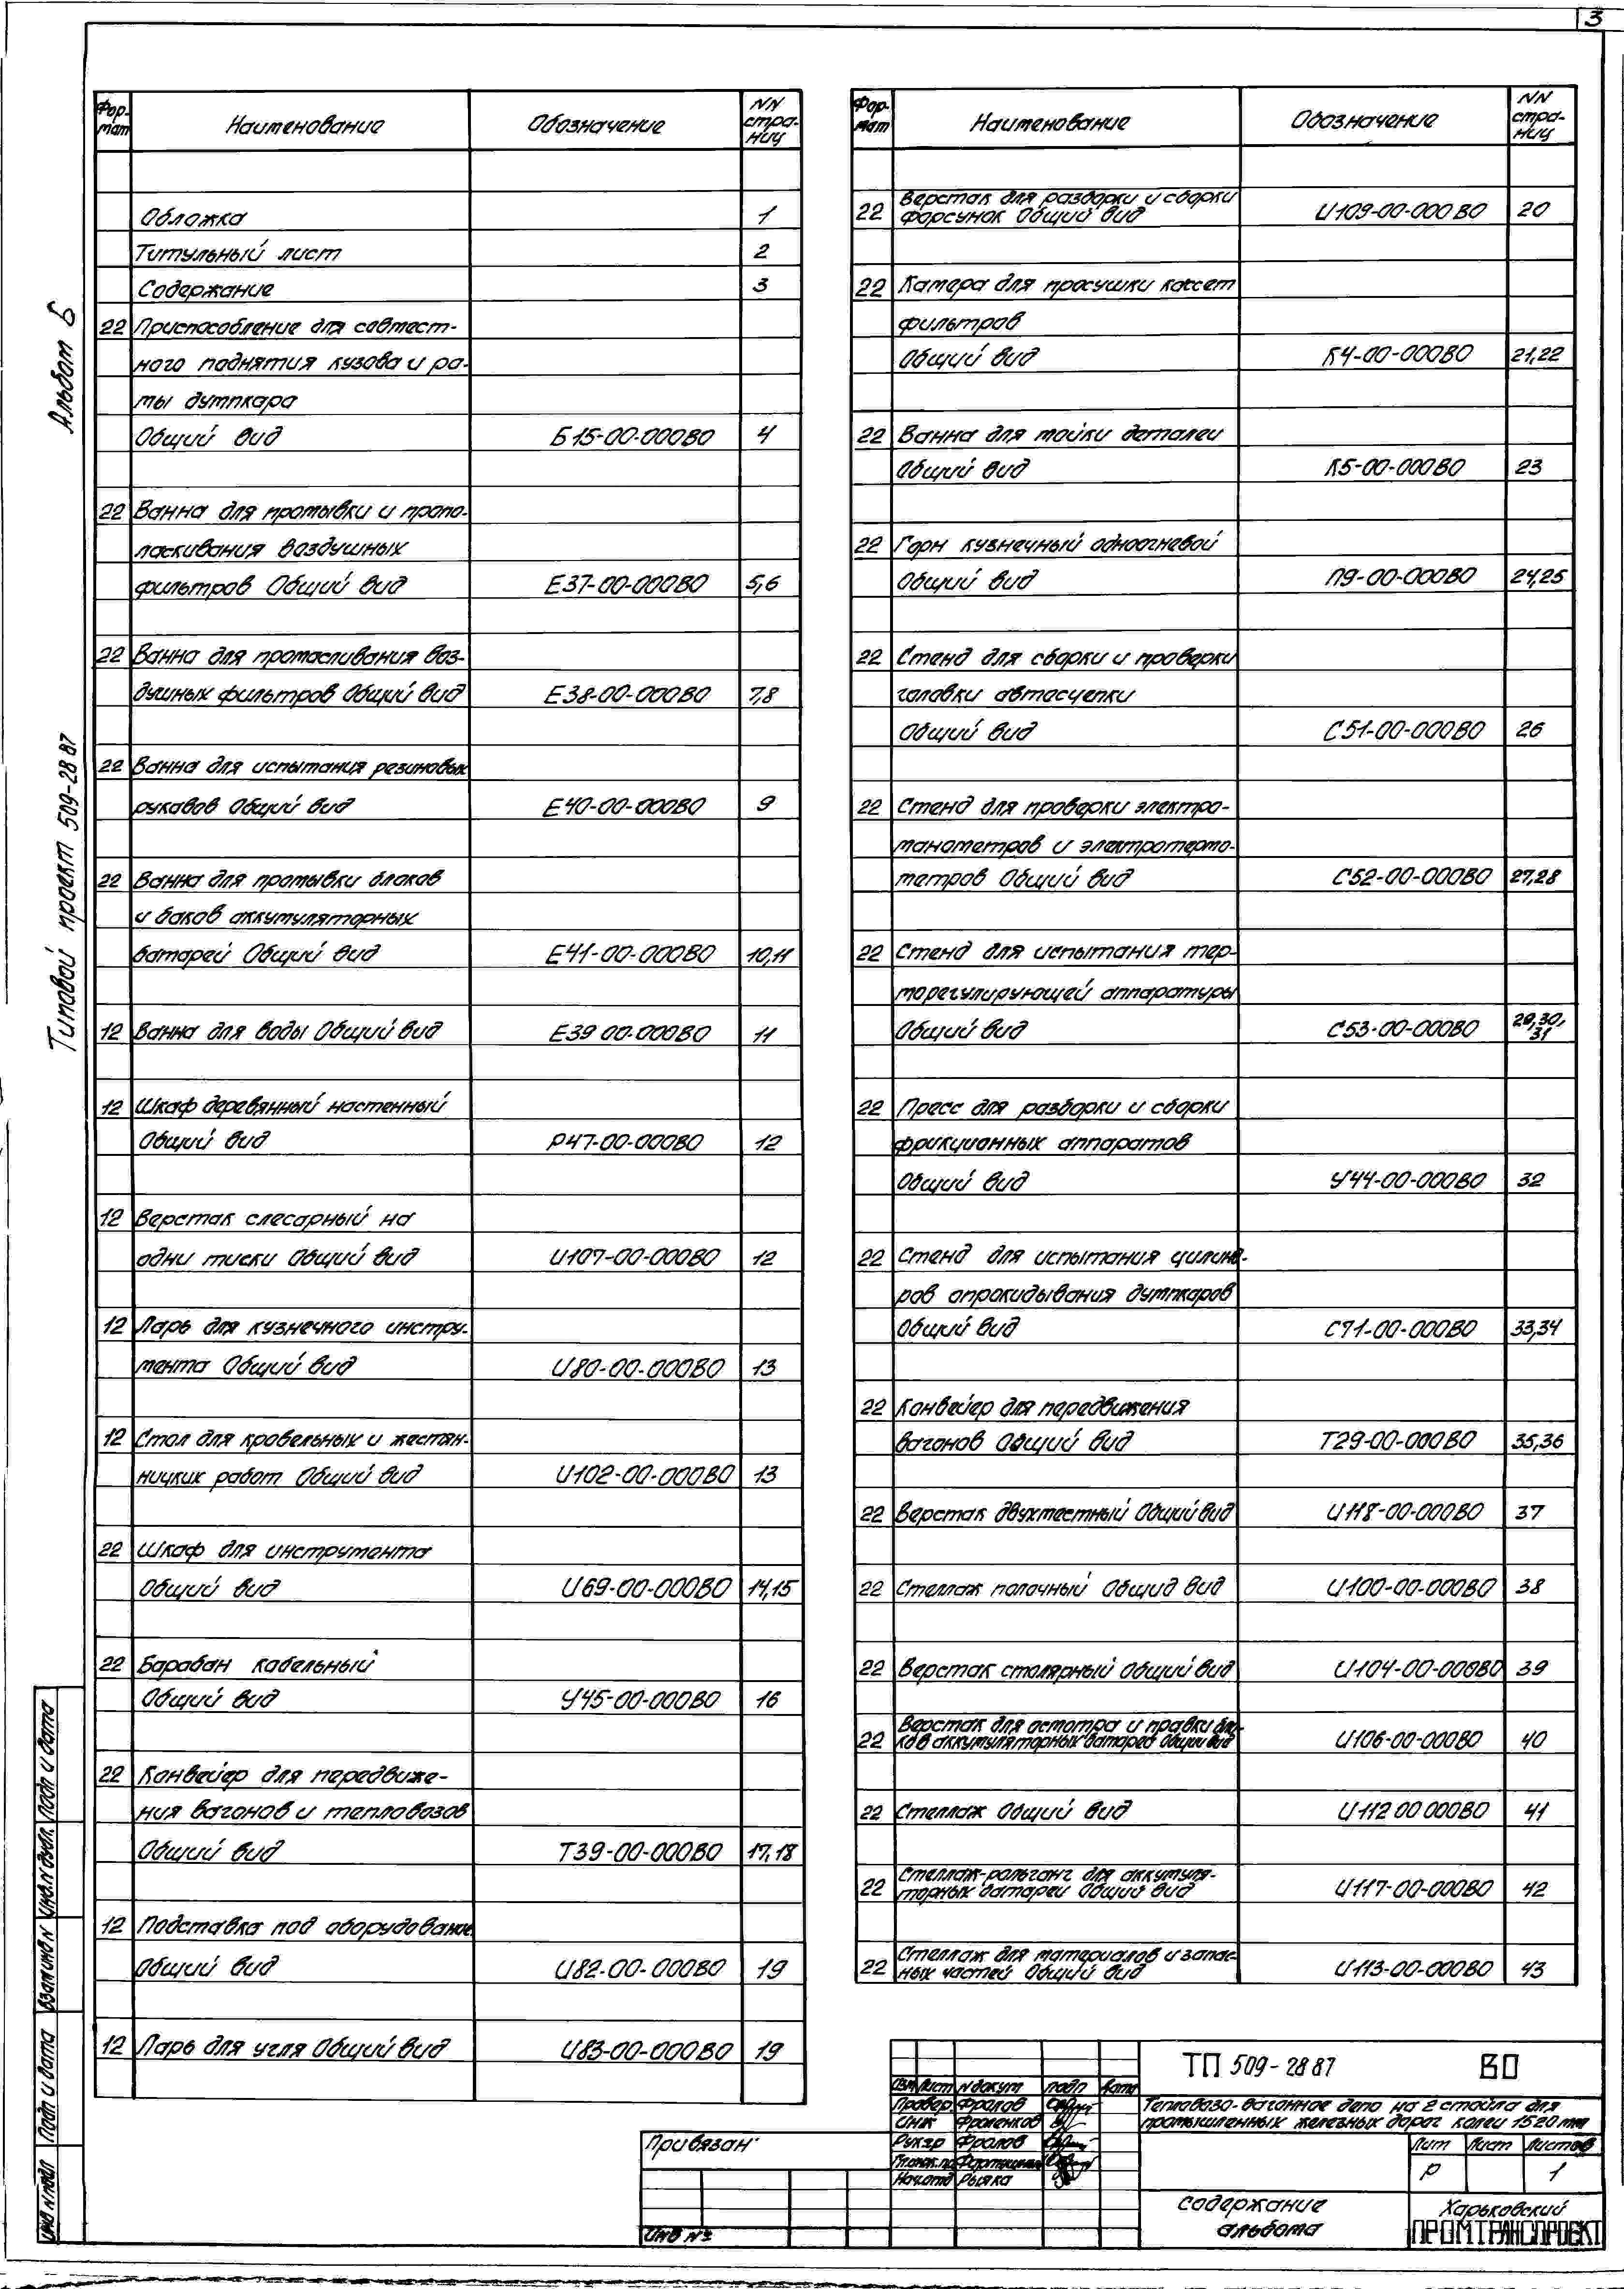 3
Альбом 6
Типовой проект 509-28 87
Фор-
мат
Наименование
Обозначение
NN
стра-
ниц
Обложка 1
Титульный лист 2
Содержание 3
22 Приспособление для совмест-
ного поднятия кузова и ра-
мы думпкара
Общий вид Б15-00-000ВО 4
22 Ванна для промывки и пропо-
ласкивания воздушных
фильтров Общий вид Е37-00-000ВО 5,6
22 Ванна для промасливания воз-
душных фильтров Общий вид Е38-00-000ВО 7,8
22 Ванна для испытания резиновых
рукавов Общий вид Е40-00-000ВО 9
22 Ванна для промывки блоков
и баков аккумуляторных
батарей Общий вид Е41-00-000ВО 10,11
12 Ванна для воды Общий вид Е39 00-000ВО 11
12 Шкаф деревянный настенный
Общий вид Р47-00-000ВО 12
12 Верстак слесарный на
одни тиски Общий вид И107-00-000ВО 12
12 Ларь для кузнечного инстру-
мента Общий вид И80-00-000ВО 13
12 Стол для кровельных и жестян-
ницких работ Общий вид И102-00-000ВО 13
22 Шкаф для инструмента
Общий вид И69-00-000ВО 14,15
22 Барабан кабельный
Общий вид У45-00-000ВО 16
22 Конвейер для передвиже-
ния вагонов и тепловозов
Общий вид Т39-00-000ВО 17,18
12 Подставка под оборудование
Общий вид И82-00-000ВО 19
12 Ларь для угля Общий вид И83-00-000ВО 19
Фор-
мат
Наименование
Обозначение
NN
стра-
ниц
Верстак для разборки и сборки
22 форсунок Общий вид И109-00-000ВО 20
22 Камера для просушки кассет
фильтров
Общий вид К4-00-000ВО 21,22
22 Ванна для мойки деталей
Общий вид К5-00-000ВО 23
22 Горн кузнечный одноогневой
Общий вид П9-00-000ВО 24,25
22 Стенд для сборки и проверки
головки автосцепки
Общий вид С51-00-000ВО 26
22 Стенд для проверки электро-
манометров и электротермо-
метров Общий вид С52-00-000ВО 27,28
22 Стенд для испытания тер-
морегулирующей аппаратуры
Общий вид С53-00-000ВО 29,30,
31
22 Пресс для разборки и сборки
фрикционных аппаратов
Общий вид У44-00-000ВО 32
22 Стенд для испытания цилинд-
ров опрокидывания думпкаров
Общий вид С71-00-000ВО 33,34
22 Конвейер для передвижения
вагонов Общий вид Т29-00-000ВО 35,36
22 Верстак двухместный Общий вид И118-00-000ВО 37
22 Стеллаж полочный Общид вид И100-00-000ВО 38
22 Верстак столярный Общий вид И104-00-000ВО 39
Верстак для осмотра и правки бло-
22 ков аккумуляторных батарей Общий вид И106-00-000ВО 40
22 Стеллаж Общий вид И112 00 000ВО 41
Стеллаж-рольганг для аккумуля-
22 торных батарей Общий вид И117-00-000ВО 42
Стеллаж для материалов и запас-
22 ных частей Общий вид И113-00-000ВО 43
Инв N подл Подп и дата Взам инв N Инв. N дубл. Подп и дата
Привязан:
Инв №
Изм Лист N докум подп дата
Провер Фролов
Инж Фроленков
Рук гр Фролов
Нач отд Рыжка
ТП 509-28 87 ВО
Тепловозо-вагонное депо на 2 стойла для
промышленных железных дорог колеи 1520 мм
Лит Лист Листов
Р 1
содержание
альбома
Харьковский
ПРОМТРАНСПРОЕКТ